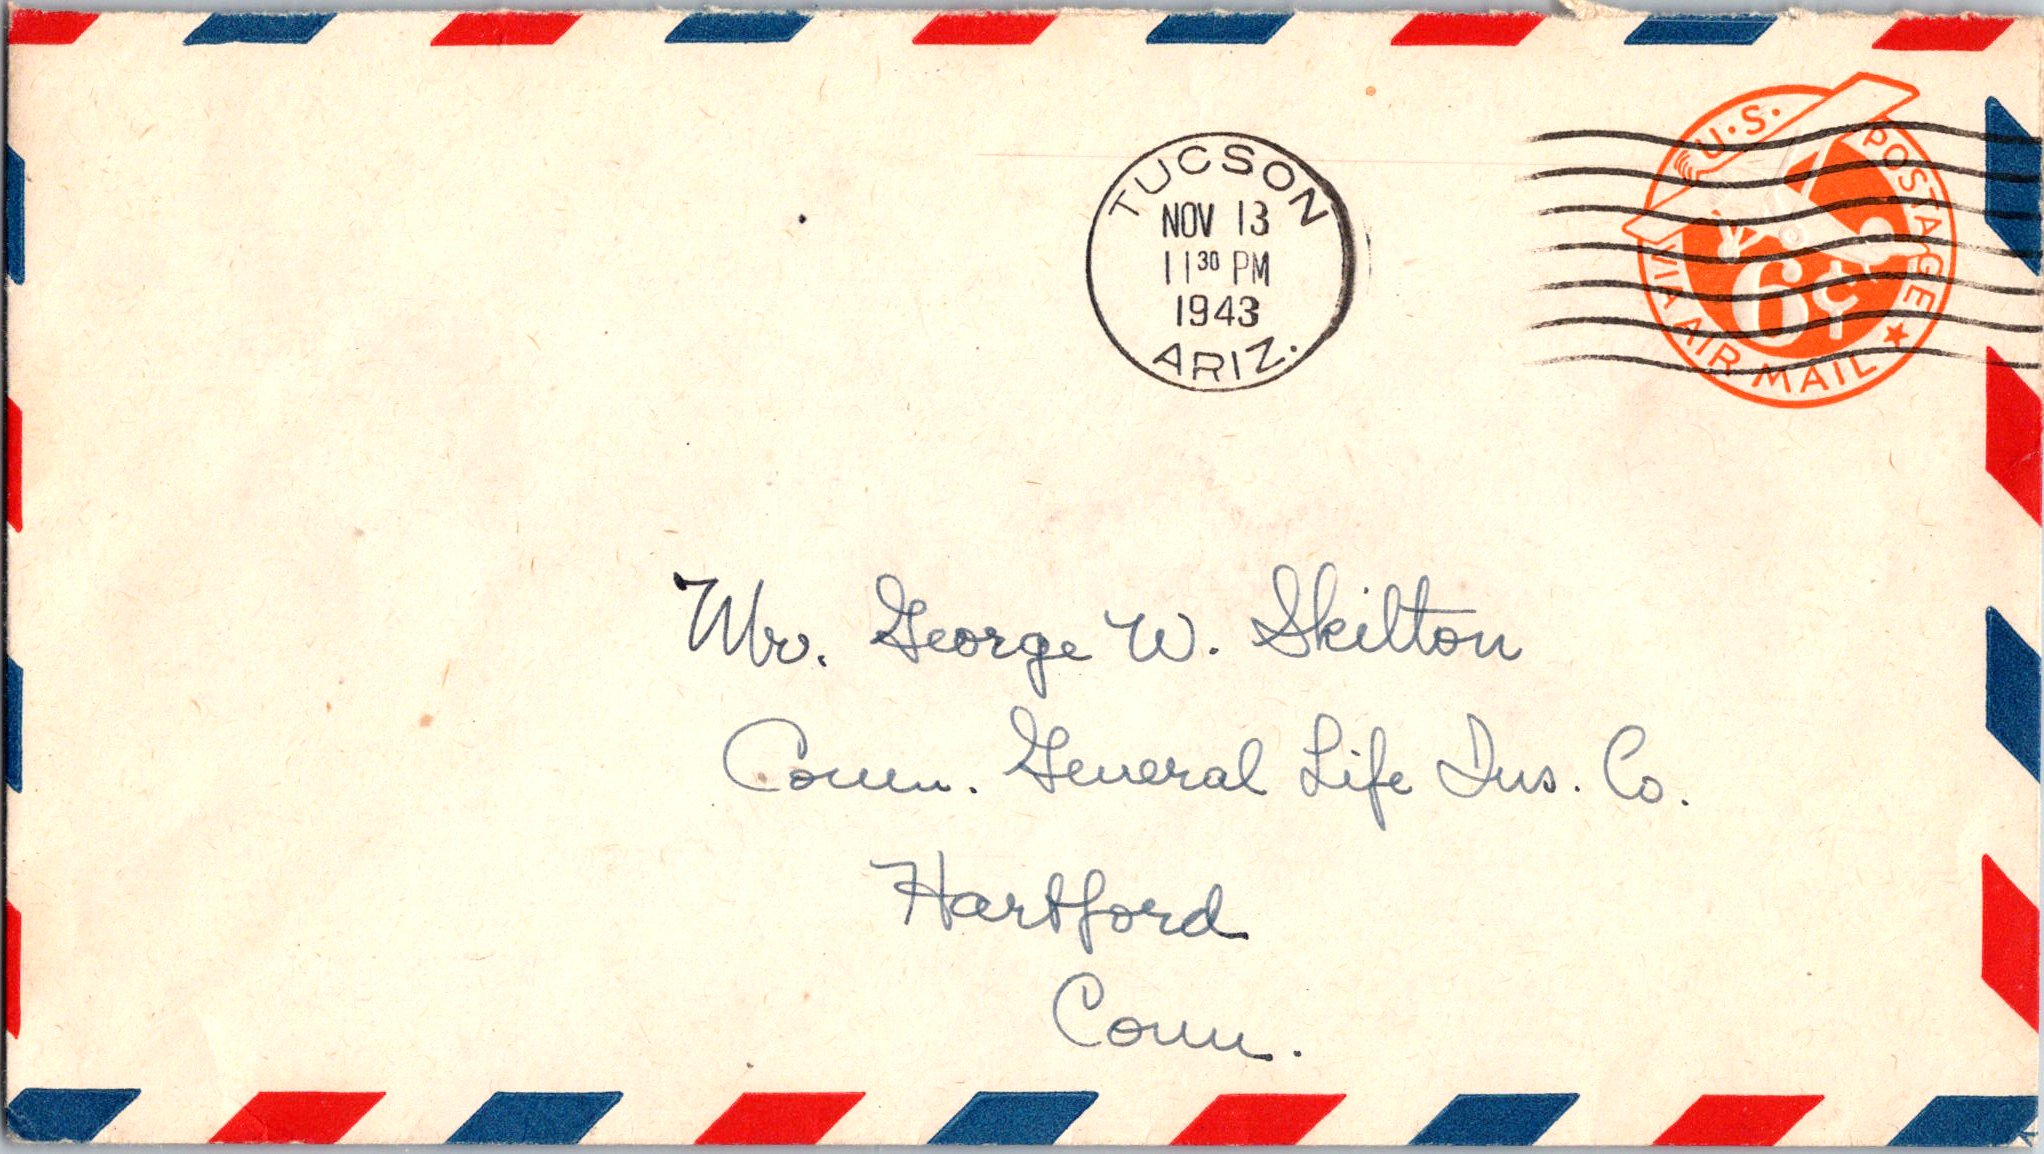 TUCSON
NOV 13
11 30 PM
1943
ARIZ.
U.S. POSTAGE
6¢
VIA AIR MAIL
Mr. George W. Skilton
Conn. General Life Ins. Co.
Hartford
Conn.